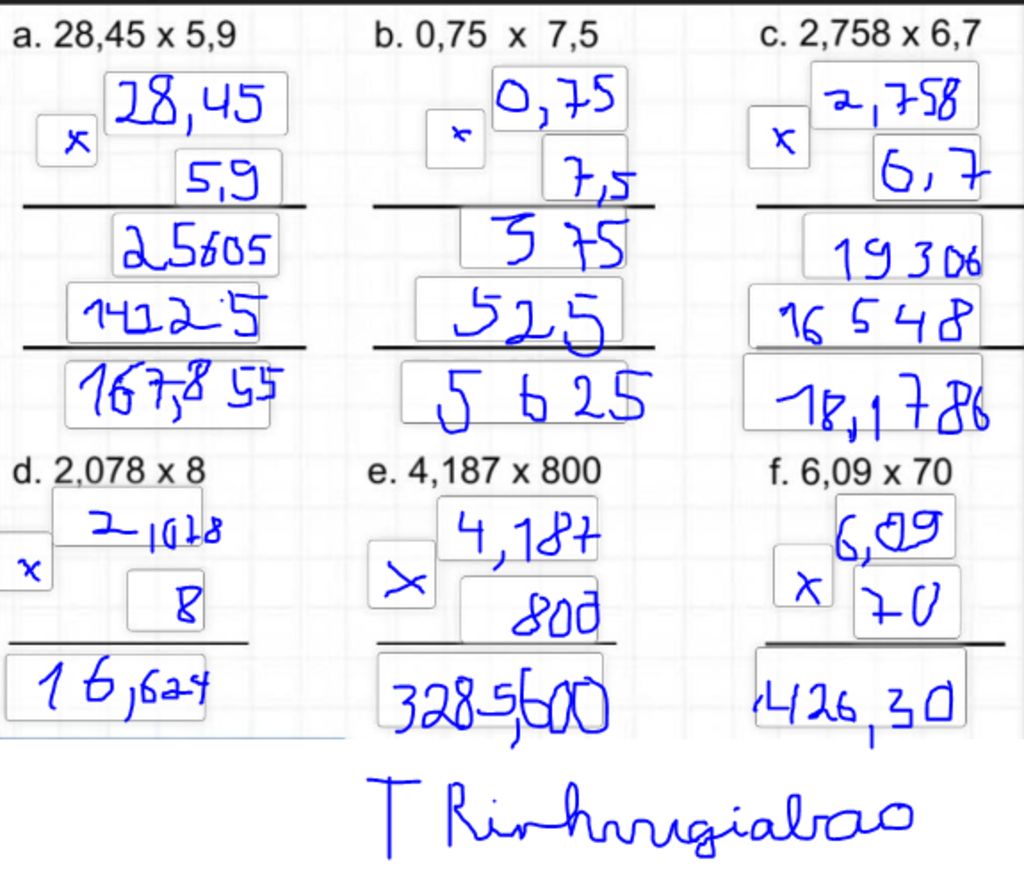 a. 28,45 x 5,9 b. 0,75 x 7,5 c. 2,758 x 6,7
28,45 0,75 2,758
x x x
5,9 7,5 6,7
25605 375 19306
14225 525 16548
167,855 5625 18,1786
d. 2,078 x 8 e. 4,187 x 800 f. 6,09 x 70
2,078 4,187 6,09
x x x
8 800 70
16,624 3285,600 426,30